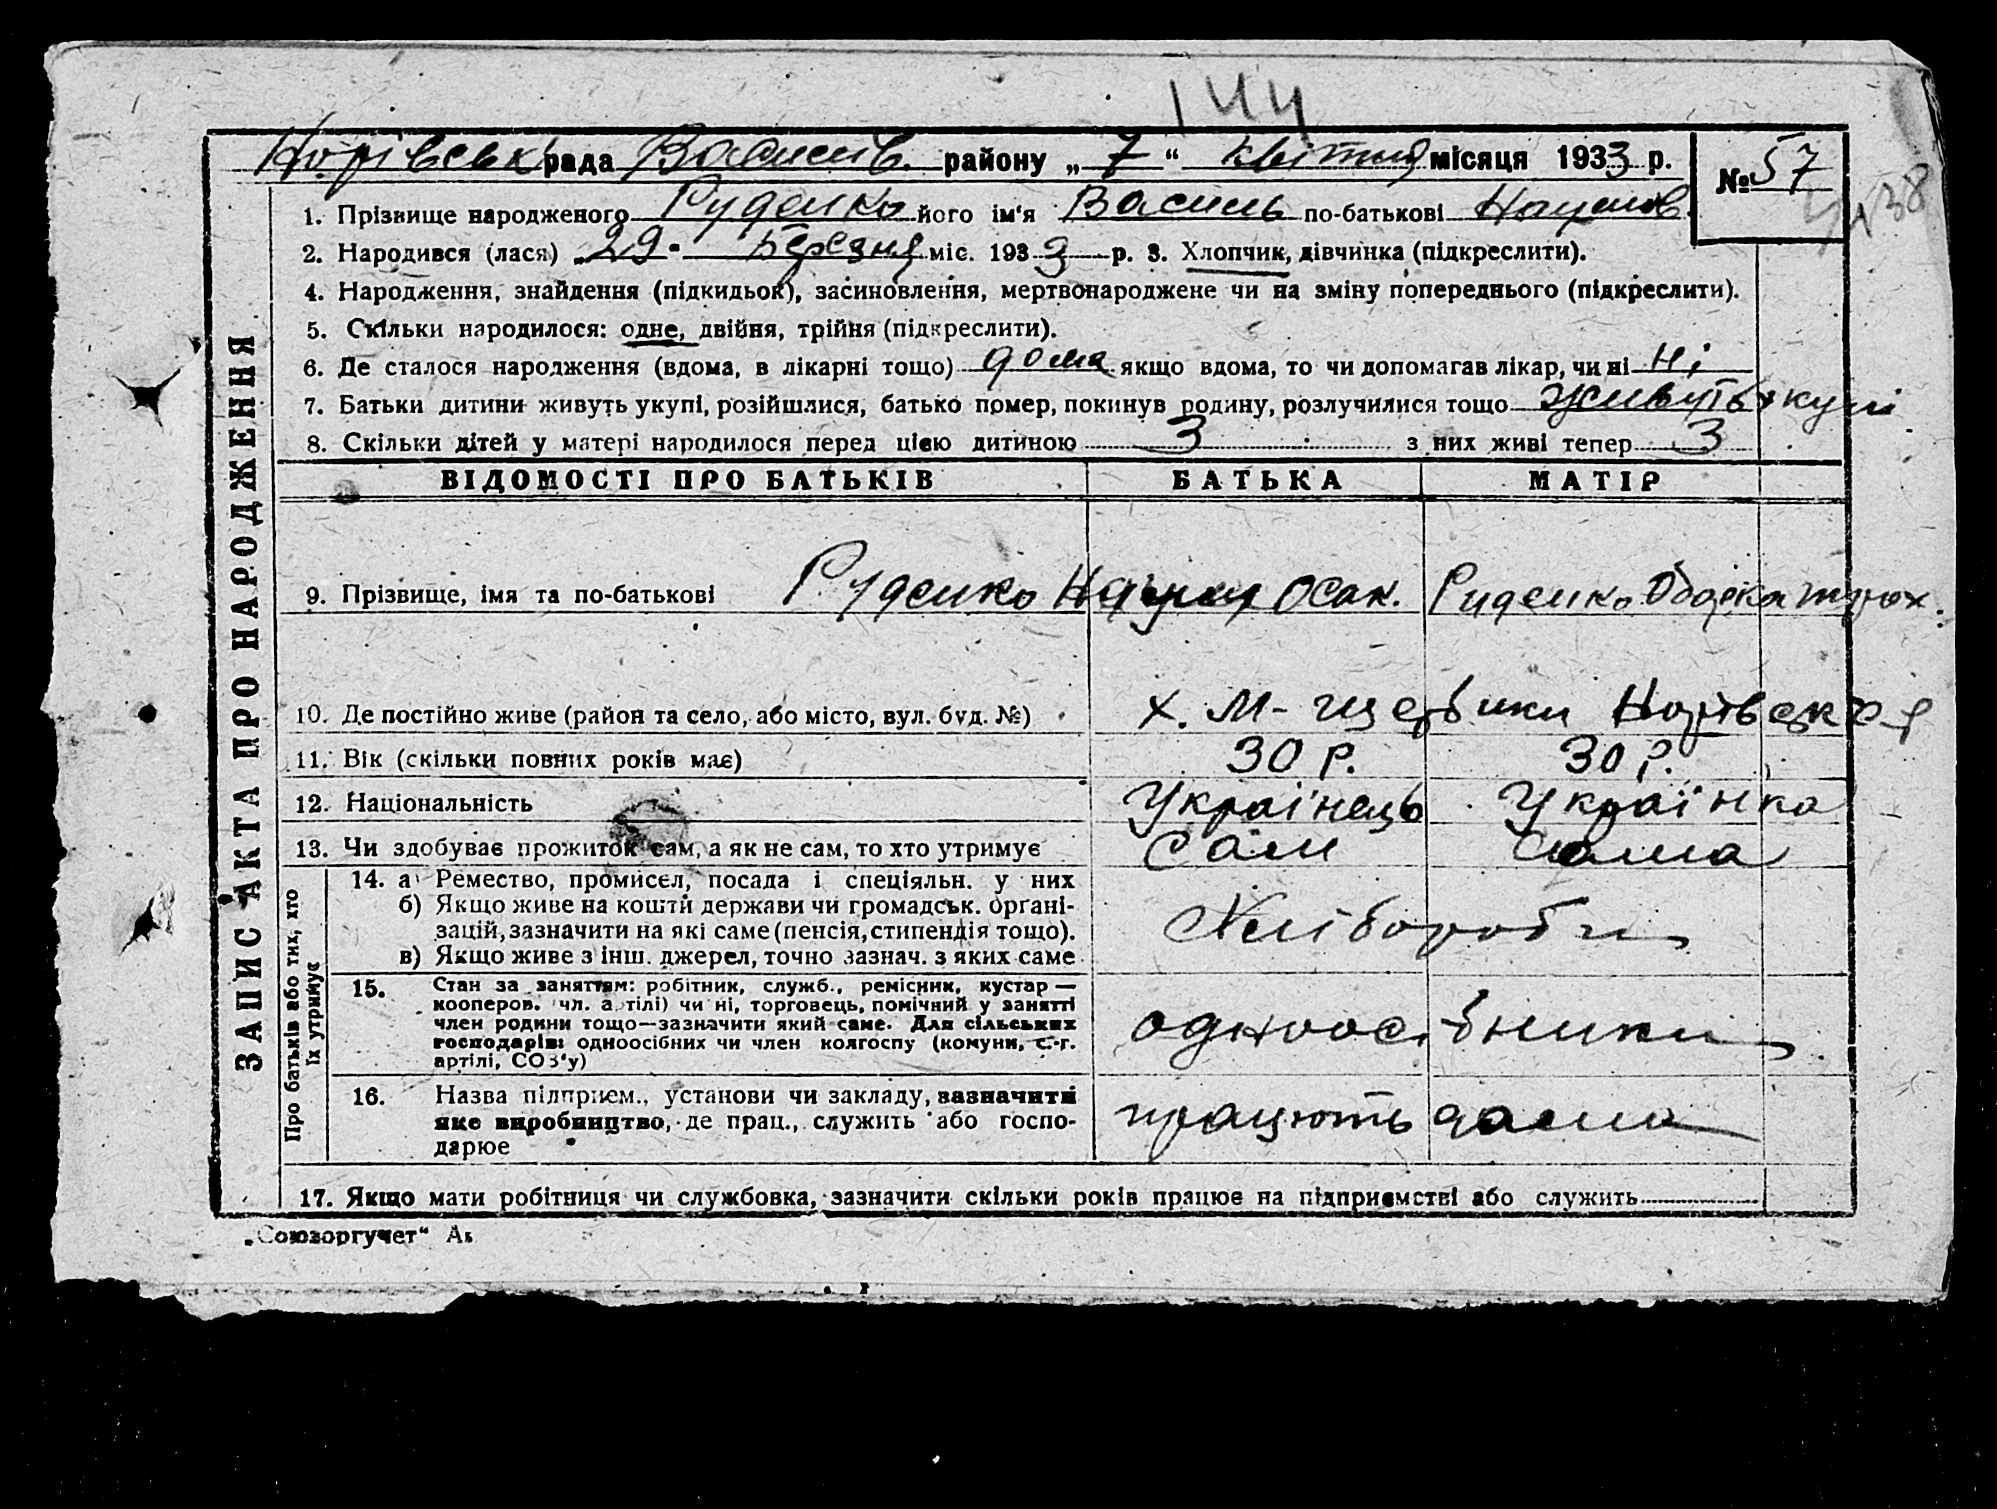 144
рада Василів. району „ 7 “ квітня місяця 1933 р. № 57
138
1. Прізвище народженого Руденко його ім'я Василь по-батькові Наумов.
2. Народився (лася) „ 29 “ Березня міс. 1933 р. 3. Хлопчик, дівчинка (підкреслити).
4. Народження, знайдення (підкидьок), засиновлення, мертвонароджене чи на зміну попереднього (підкреслити).
5. Скільки народилося: одне, двійня, трійня (підкреслити).
6. Де сталося народження (вдома, в лікарні тощо) дома якщо вдома, то чи допомагав лікар, чи ні Ні
7. Батьки дитини живуть укупі, розійшлися, батько помер, покинув родину, розлучилися тощо живуть вкупі
8. Скільки дітей у матері народилося перед цією дитиною 3 з них живі тепер 3
ЗАПИС АКТА ПРО НАРОДЖЕННЯ
ВІДОМОСТІ ПРО БАТЬКІВ БАТЬКА МАТІР
9. Прізвище, імя та по-батькові Руденко Наум Осак. Руденко
10. Де постійно живе (район та село, або місто, вул. буд. №) х. М-Щербики
11. Вік (скільки повних років має) 30 р. 30 р.
12. Національність Українець Українка
13. Чи здобуває прожиток сам, а як не сам, то хто утримує Сам Сама
Про батьків або тих, хто
їх утримує
14. а) Ремество, промисел, посада і спеціяльн. у них
б) Якщо живе на кошти держави чи громадськ. органі-
зацій, зазначити на які саме (пенсія, стипендія тощо).
в) Якщо живе з інш. джерел, точно зазнач. з яких саме
Хлібороби
15. Стан за заняттям: робітник, служб., ремісник, кустар —
кооперов. чл. артілі) чи ні, торговець, помічний у занятті
член родини тощо—зазначити який саме. Для сільських
господарів: одноосібних чи член колгоспу (комуни, с.-г.
артілі, СОЗ'у)
одноосібники
16. Назва підприєм., установи чи закладу, зазначити
яке виробництво, де прац., служить або госпо-
дарює
працюють дома
17. Якщо мати робітниця чи службовка, зазначити скільки років працює на підприємстві або служить
„Союзоргучет“